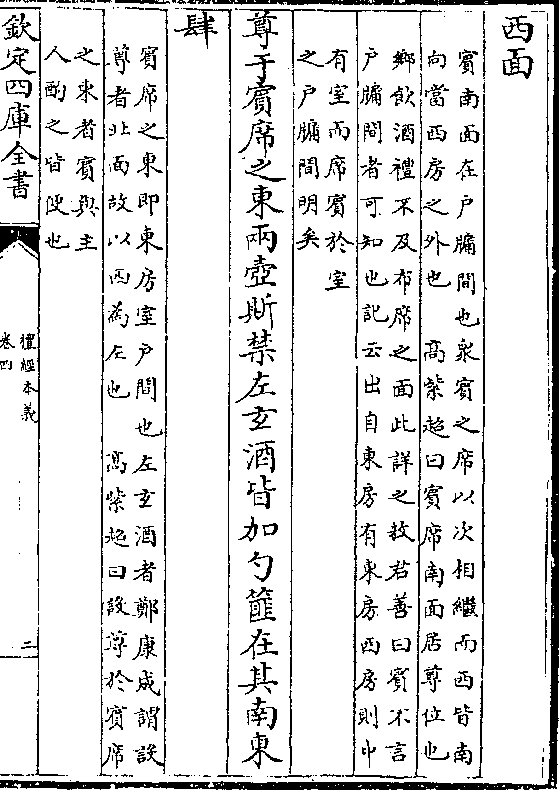 西面
賓南面在戶牖間也衆賓之席以次相繼而西皆南
向當西房之外也　高紫超曰賓席南面居尊位也
鄉飲酒禮不及布席之面此詳之敖君善曰賓不言
戶牖間者可知也記云出自東房有東房西房則中
有室而席賓於室
之戶牖間明矣
尊于賓席之東兩壺斯禁左玄酒皆加勺篚在其南東
肆
賓席之東即東房室戶間也左玄酒者鄭康成謂設
尊者北面故以西為左也　高紫超曰設尊於賓席
之東者賓與主
人酌之皆便也
欽定四庫全書
禮經本義
卷四
二